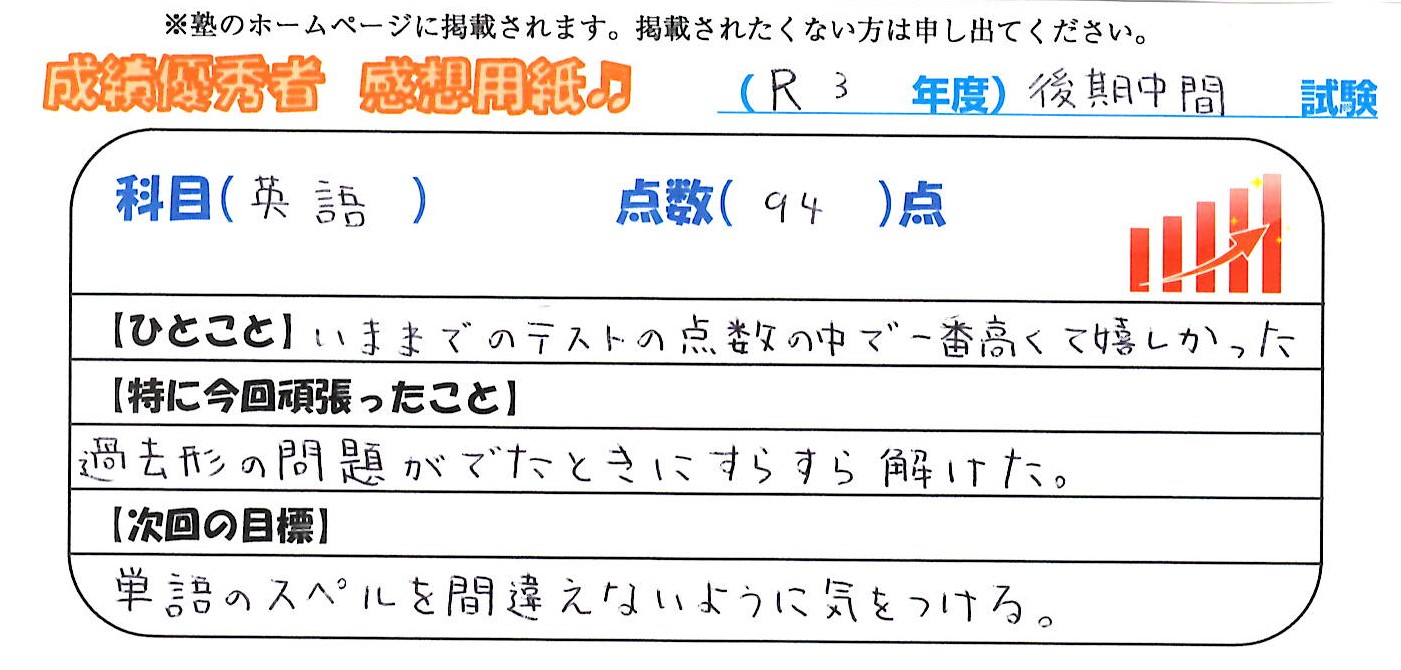 ※塾のホームページに掲載されます。掲載されたくない方は申し出てください。
成績優秀者 感想用紙♫ (R3 年度) 後期中間 試験
科目(英語) 点数(94)点
【ひとこと】いままでのテストの点数の中で一番高くて嬉しかった
【特に今回頑張ったこと】
過去形の問題がでたときにすらすら解けた。
【次回の目標】
単語のスペルを間違えないように気をつける。